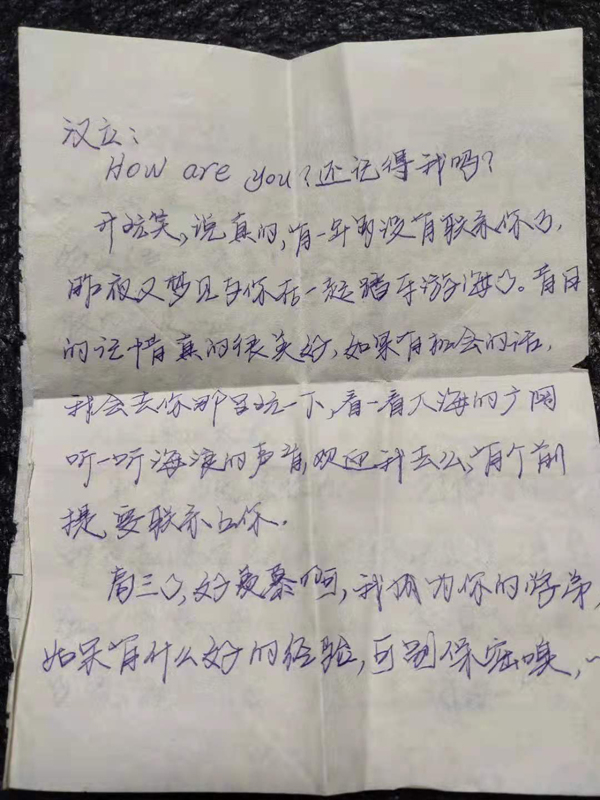 汉立：
How are you?还记得我吗？
开玩笑,说真的,有一年多没有联系你了,
昨夜又梦见与你在一起踏车游海了。昔日
的记忆真的很美好,如果有机会的话,
我会去你那里玩一下,看一看大海的广阔
听一听海浪的声音,欢迎我去么,有个前
提,要联系上你.
高三了,好羡慕啊,我成为你的学弟,
如果有什么好的经验,可别保密噢,~